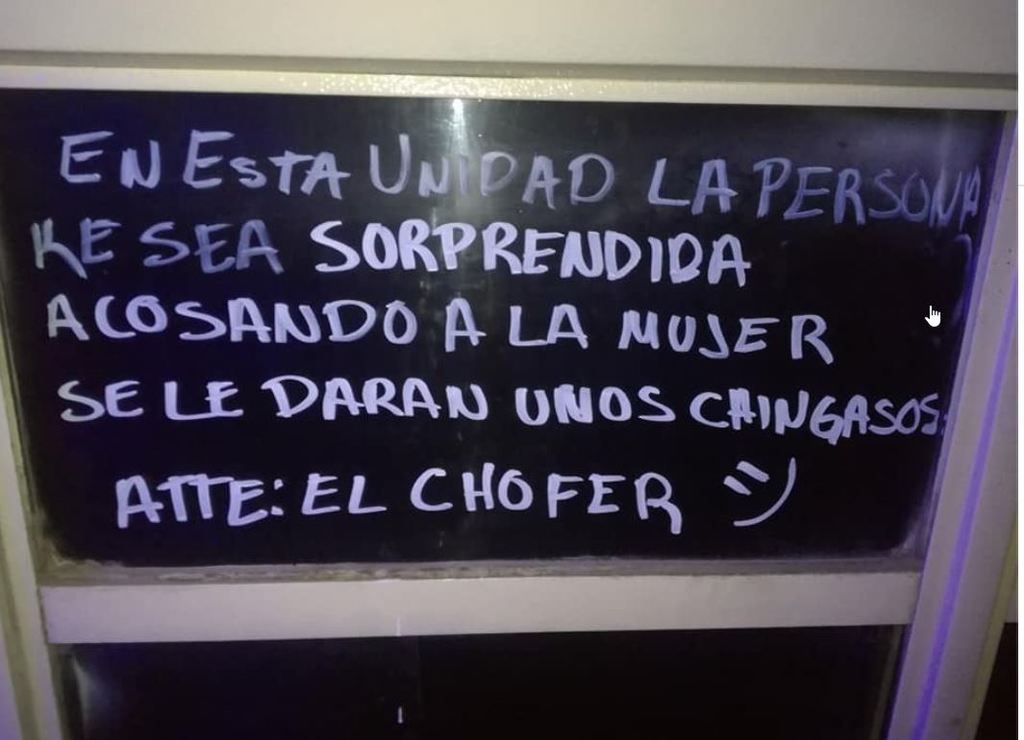 EN ESTA UNIDAD LA PERSONA
KE SEA SORPRENDIDA
ACOSANDO A LA MUJER
SE LE DARAN UNOS CAINGASOS.
ATTE: EL CHOFER